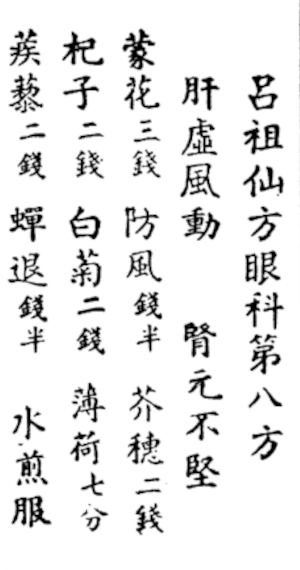 呂祖仙方眼科第八方
肝虛風動 腎元不堅
蒙花三錢 防風錢半 芥穗二錢
杞子二錢 白菊二錢 薄荷七分
蒺藜二錢 蟬退錢半 水煎服